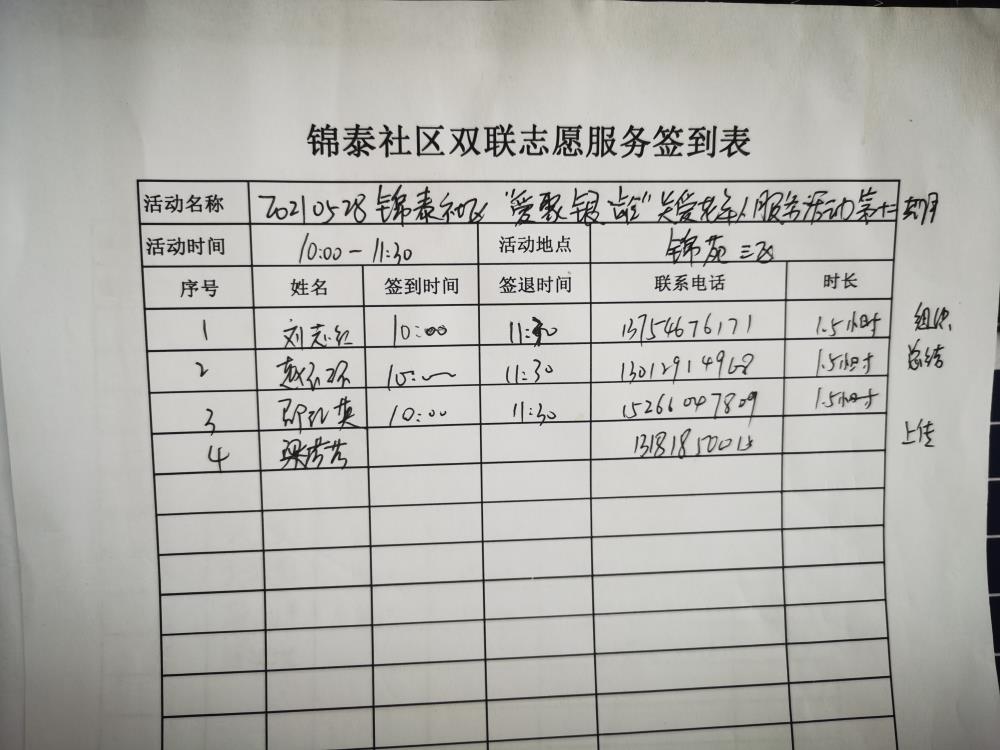 锦泰社区双联志愿服务签到表
活动名称 20210528锦泰社区“爱聚银龄”关爱老年人服务活动第十
活动时间 10:00-11:30 活动地点 锦苑三区
序号 姓名 签到时间 签退时间 联系电话 时长
1 刘志红 10:00 11:30 13754676171 1.5小时 组织
2 11:30 13012914968 1.5小时 总结
3 10:00 11:30 15266047809 1.5小时
4 梁芳芳 上传